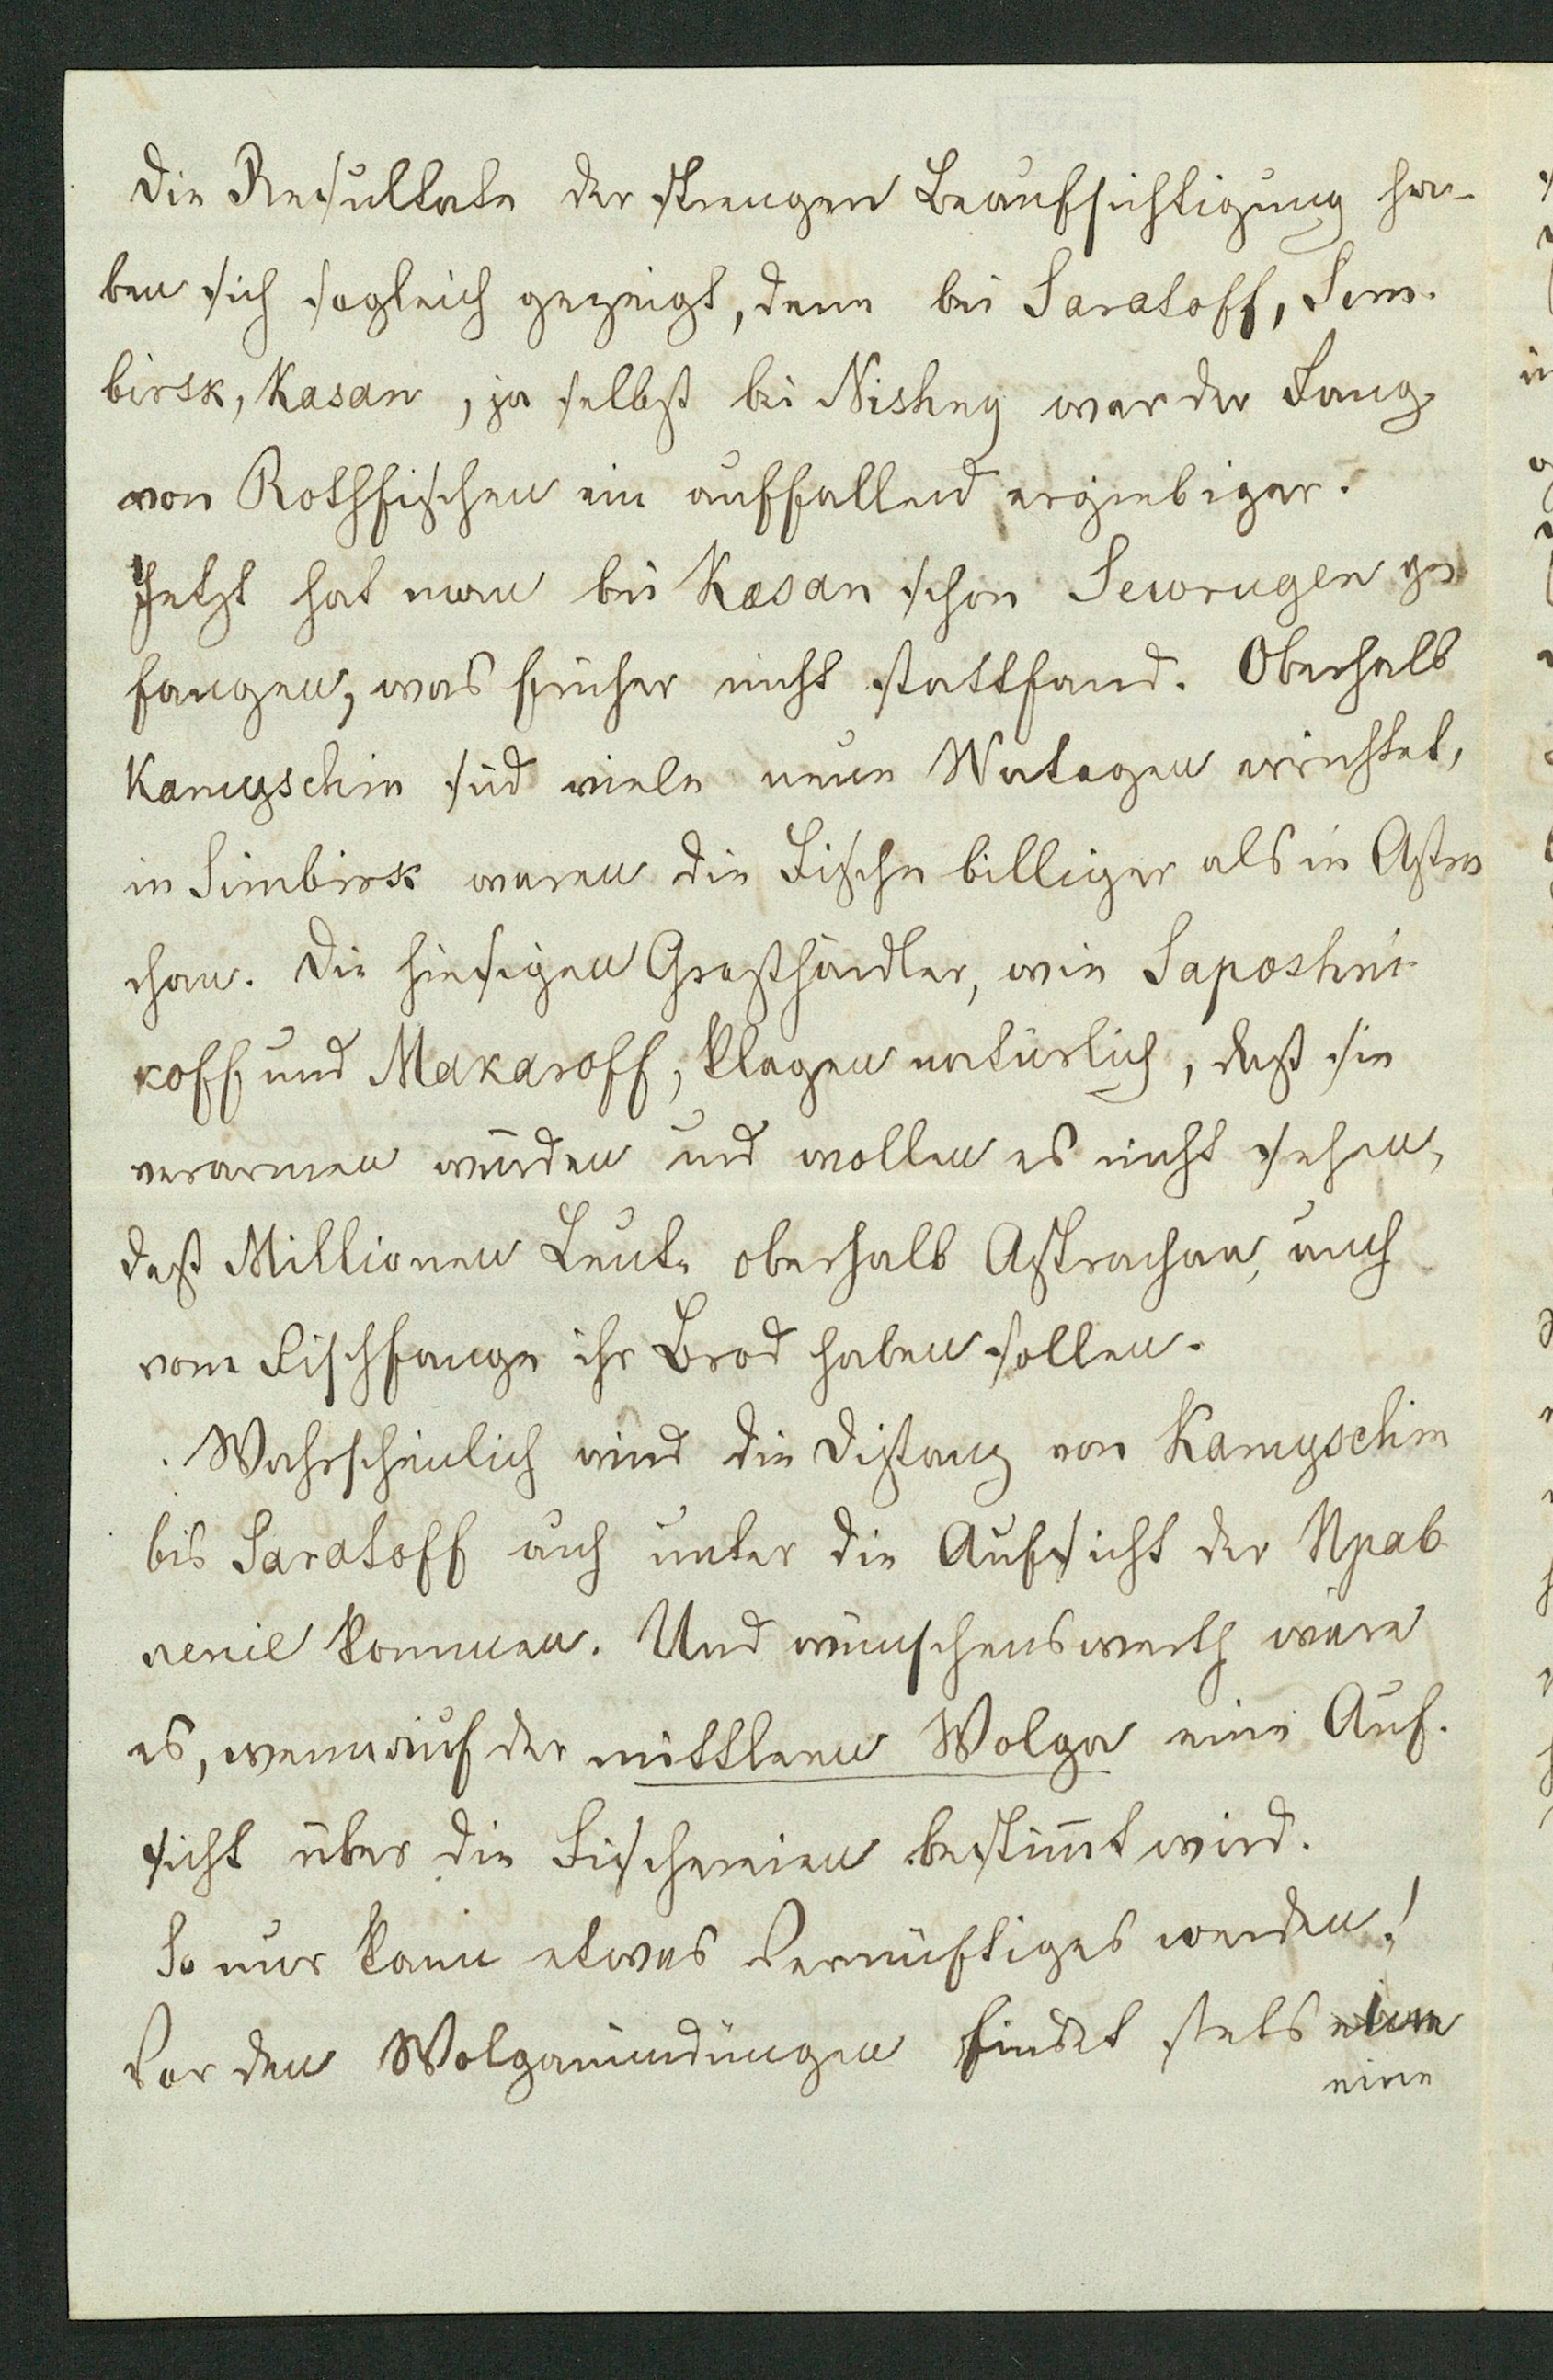 Die Resultate der strengen Beaufsichtigung ha-
ben sich sogleich gezeigt, denn bei Saratoff, Sim-
birsk, Kasan, ja selbst bei Nishny war der Fang
von Rothfischen ein auffallend ergiebiger.
Jetzt hat man bei Kasan schon Sewrugen ge
fangen, was früher nicht stattfand. Oberhalb
Kamyschin sind viele neue Watagen errichtet,
in Simbirsk waren die Fische billiger als in Astra
chan. Die hiesigen Großhändler, wie Saposhni-
koff und Makaroff, klagen natürlich, daß sie
verarmen würden und wollen es nicht sehen,
daß Millionen Leute oberhalb Astrachan, auch
vom Fischfange ihr Brod haben sollen.
Wahrscheinlich wird die Distanz von Kamyschin
bis Saratoff auch unter die Aufsicht der Uprav
lenie kommen. Und wünschenswerth wäre
es, wenn auf der mittleren Wolga eine Auf-
sicht über die Fischereien bestimt wird.
So nur kann etwas Vernünftiges werden!
Vor den Wolgamündungen findet stets eine
eine